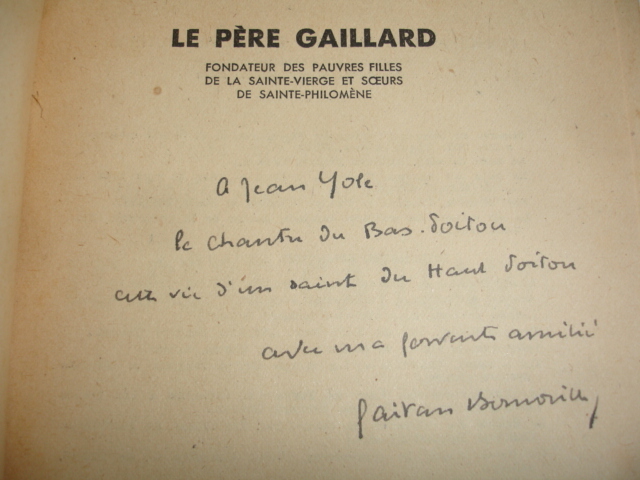 LE PÈRE GAILLARD
FONDATEUR DES PAUVRES FILLES
DE LA SAINTE-VIERGE ET SŒURS
DE SAINTE-PHILOMÈNE
A Jean Yole
le chantre du Bas-Poitou
cette vie d'un saint du Haut Poitou
avec ma fervente amitié
Gaëtan Bernoville